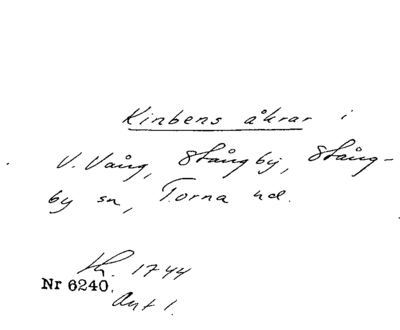 Kinbens åkrar i
V. Vång, Stångby, Stång-
by sn, Torna hd.
Lh. 1744
Nr 6240.
Avt 1.